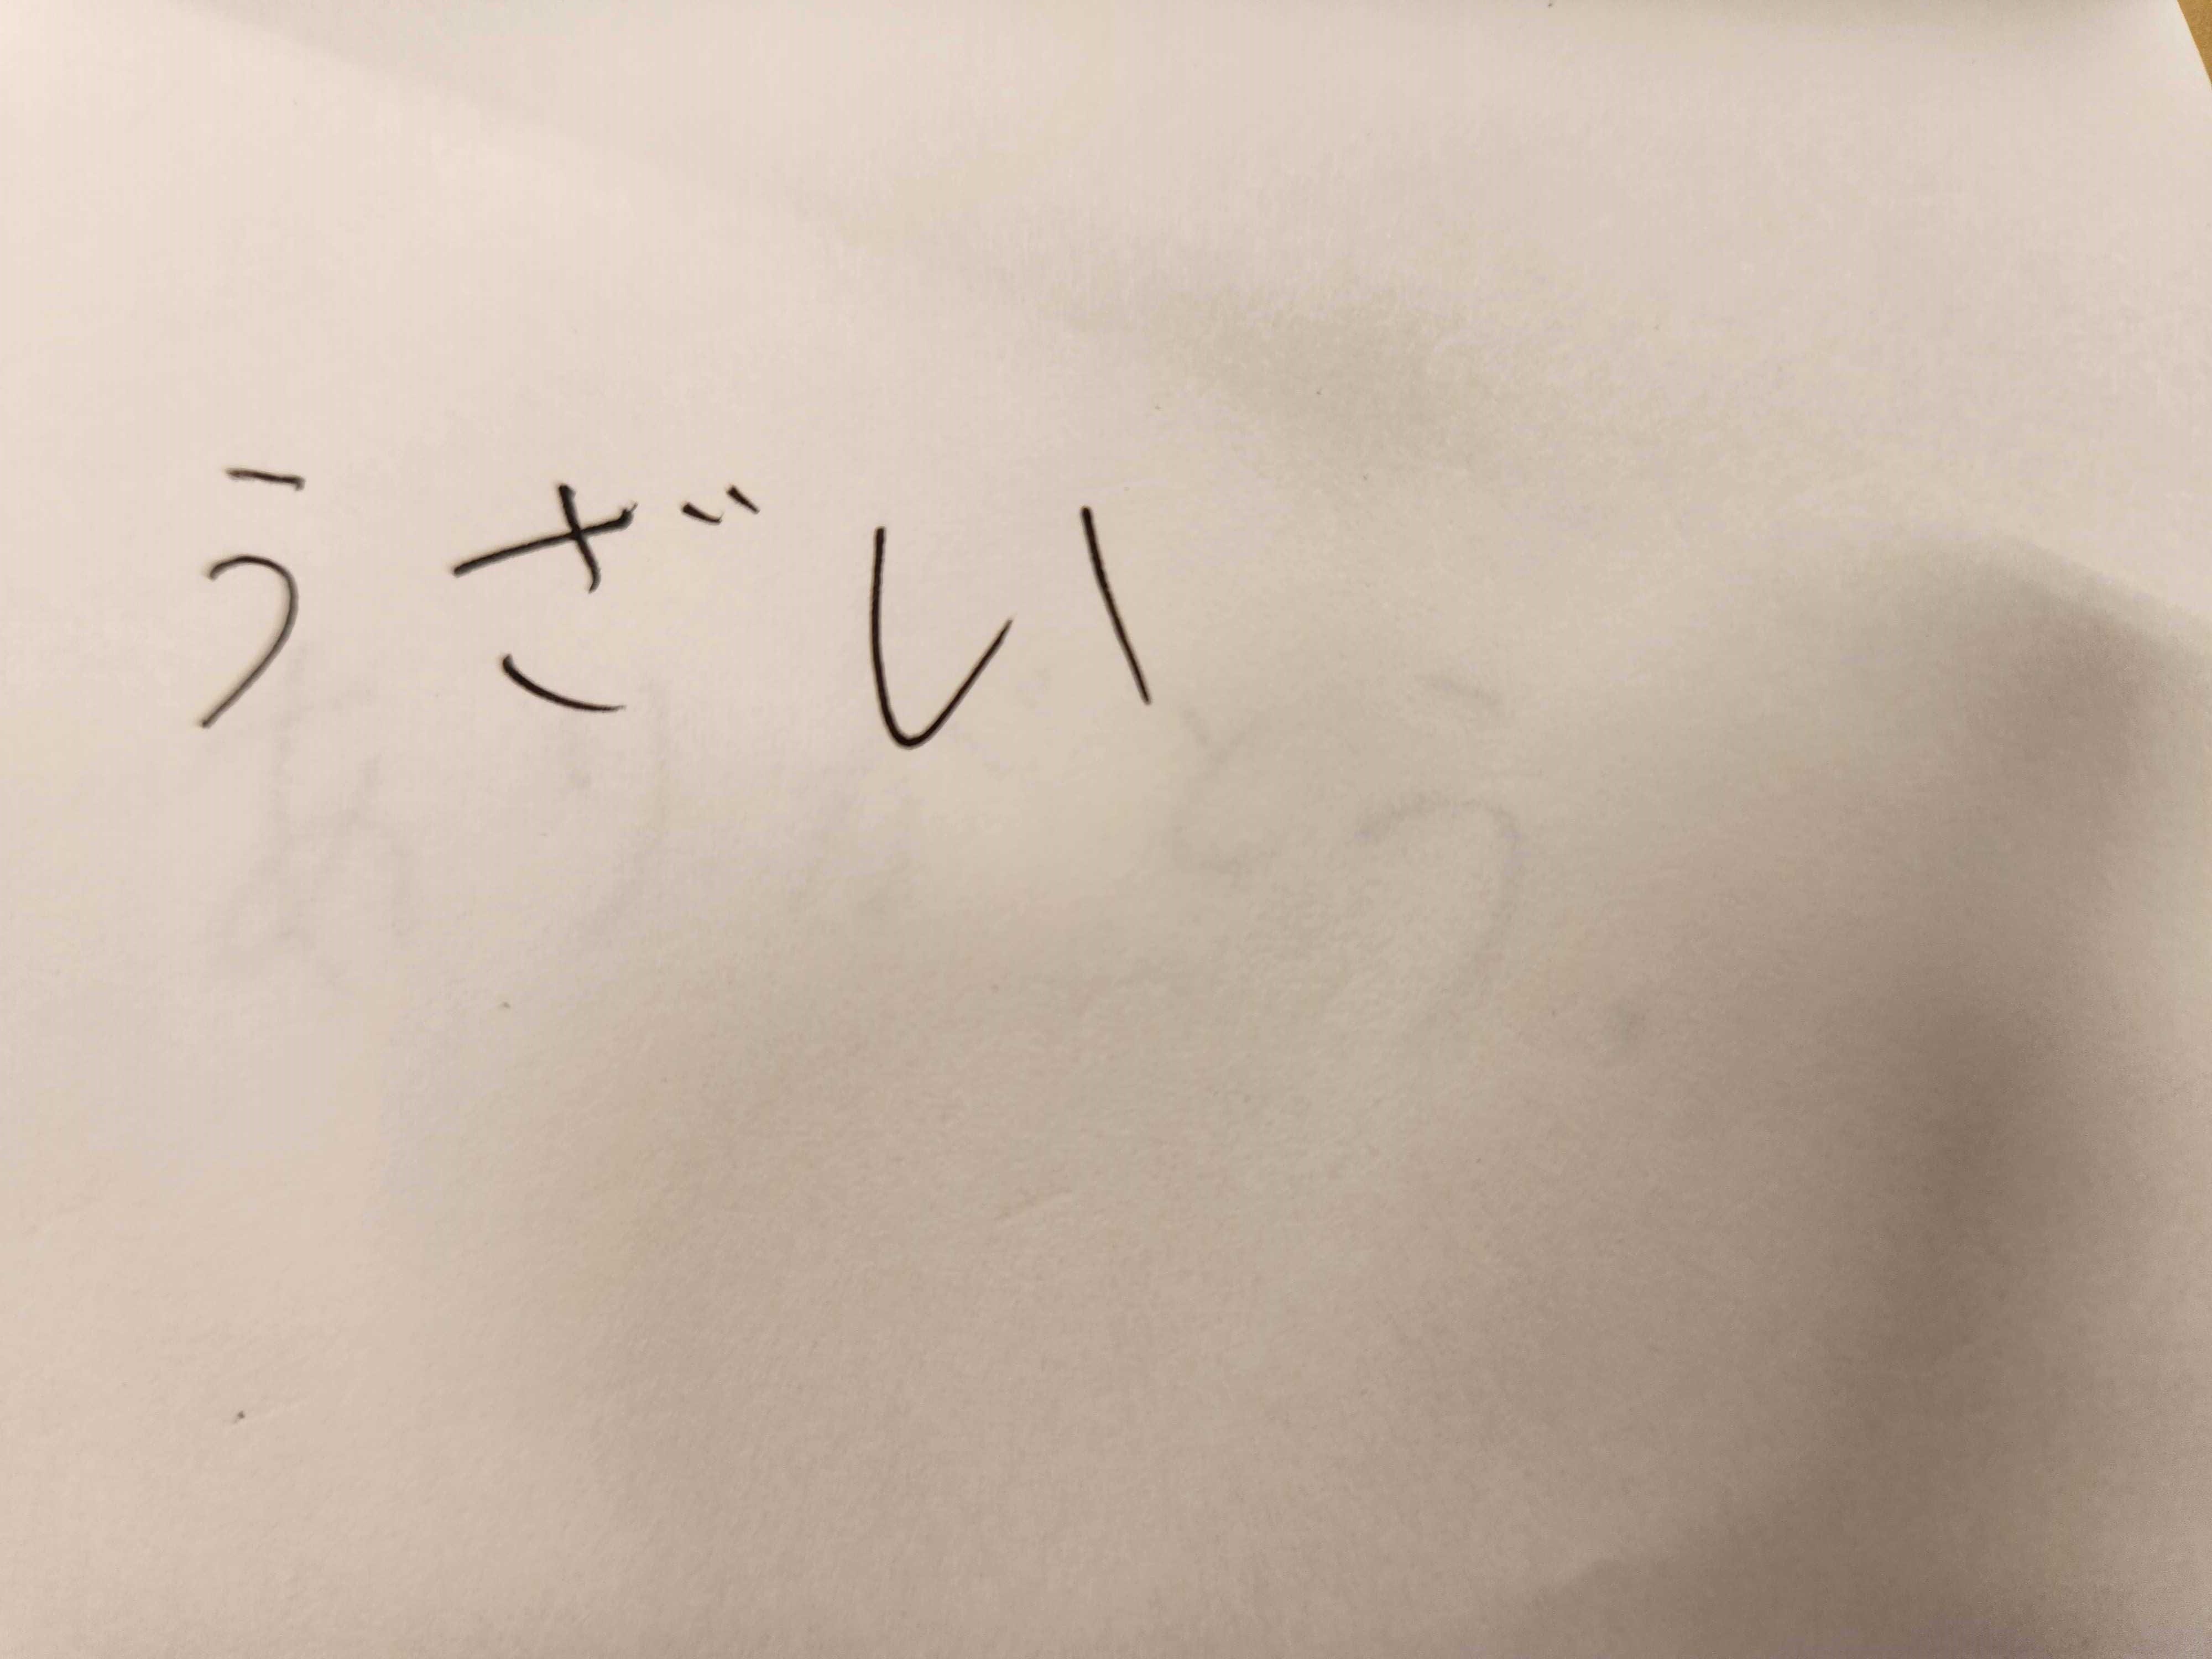 うざい